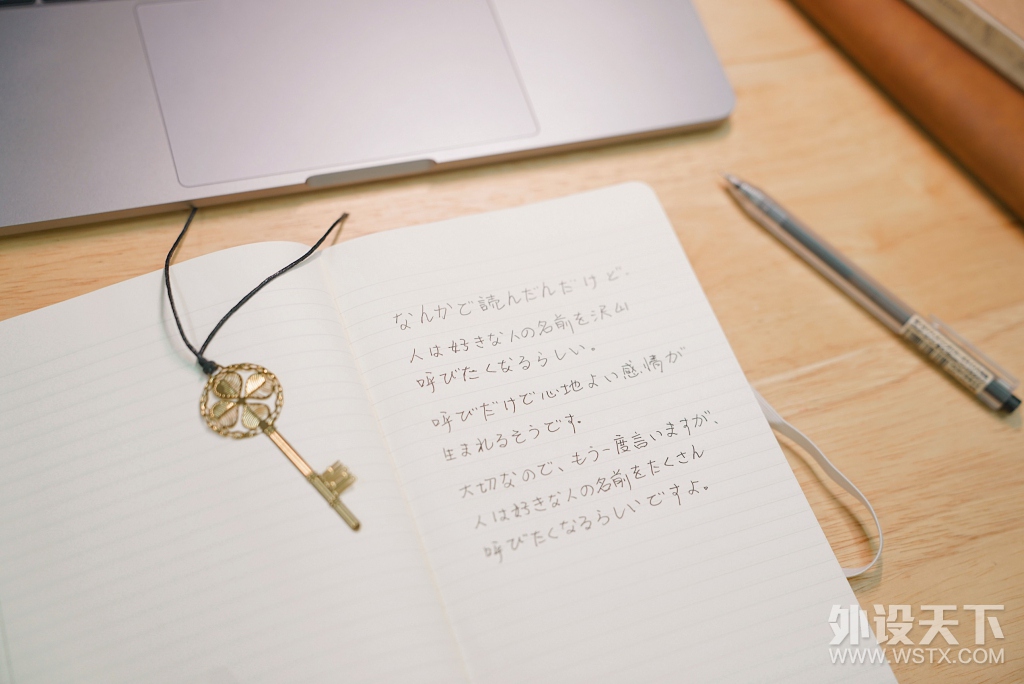 なんかで読んだんだけど、
人は好きな人の名前を沢山
呼びたくなるらしい。
呼びだけで心地よい感情が
生まれるそうです。
大切なので、もう一度言いますが、
人は好きな人の名前をたくさん
呼びたくなるらしいですよ。
外设天下
WWW.WSTX.COM